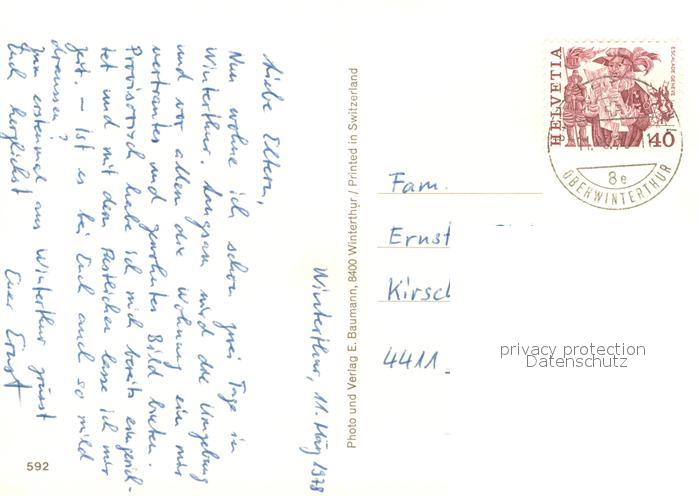 Winterthur, 11. März 1978
Liebe Eltern,
Nun wohne ich schon zwei Tage in
Winterthur. Langsam wird die Umgebung
und vor allem die Wohnung ein mir
vertrautes und gewohntes Bild bieten.
Provisorisch habe ich mich bereits eingerich-
tet und mit dem Restlichen lasse ich mir
Zeit. – Ist es bei Euch auch so mild
draussen?
Zum erstenmal aus Winterthur grüsst
Euch herzlichst
Euer Ernst
592
Photo und Verlag E. Baumann, 8400 Winterthur / Printed in Switzerland
HELVETIA
ESCALADE GENÈVE
40
8e
OBERWINTERTHUR
Fam.
Ernst
Kirsch
4411
privacy protection
Datenschutz